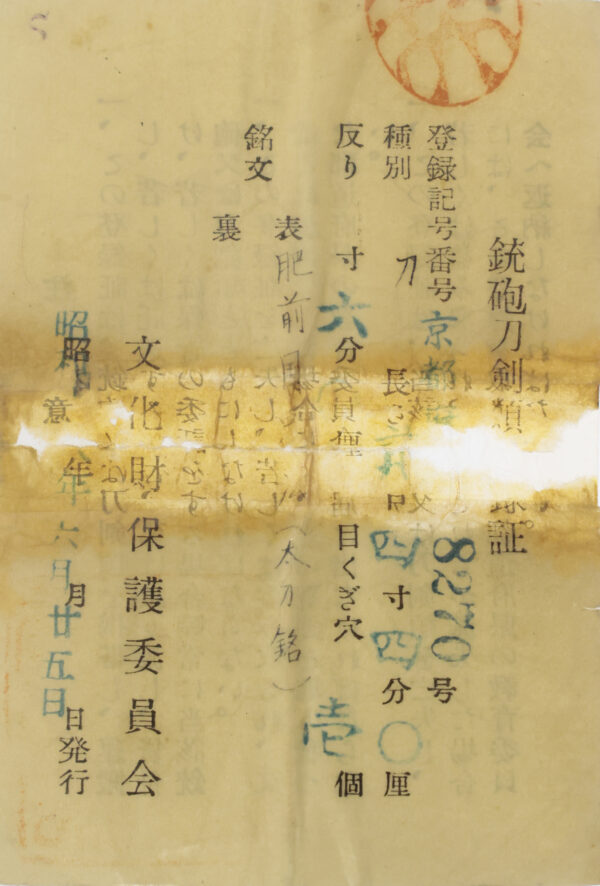 銃砲刀剣類登録証
登録記号番号 京都 8270号
種別 刀 長さ 尺四寸四分〇厘
反り 寸六分 厘 目くぎ穴 壱個
銘文 表 肥前国 (太刀銘)
裏
文化財保護委員会
昭 年六月廿五日発行